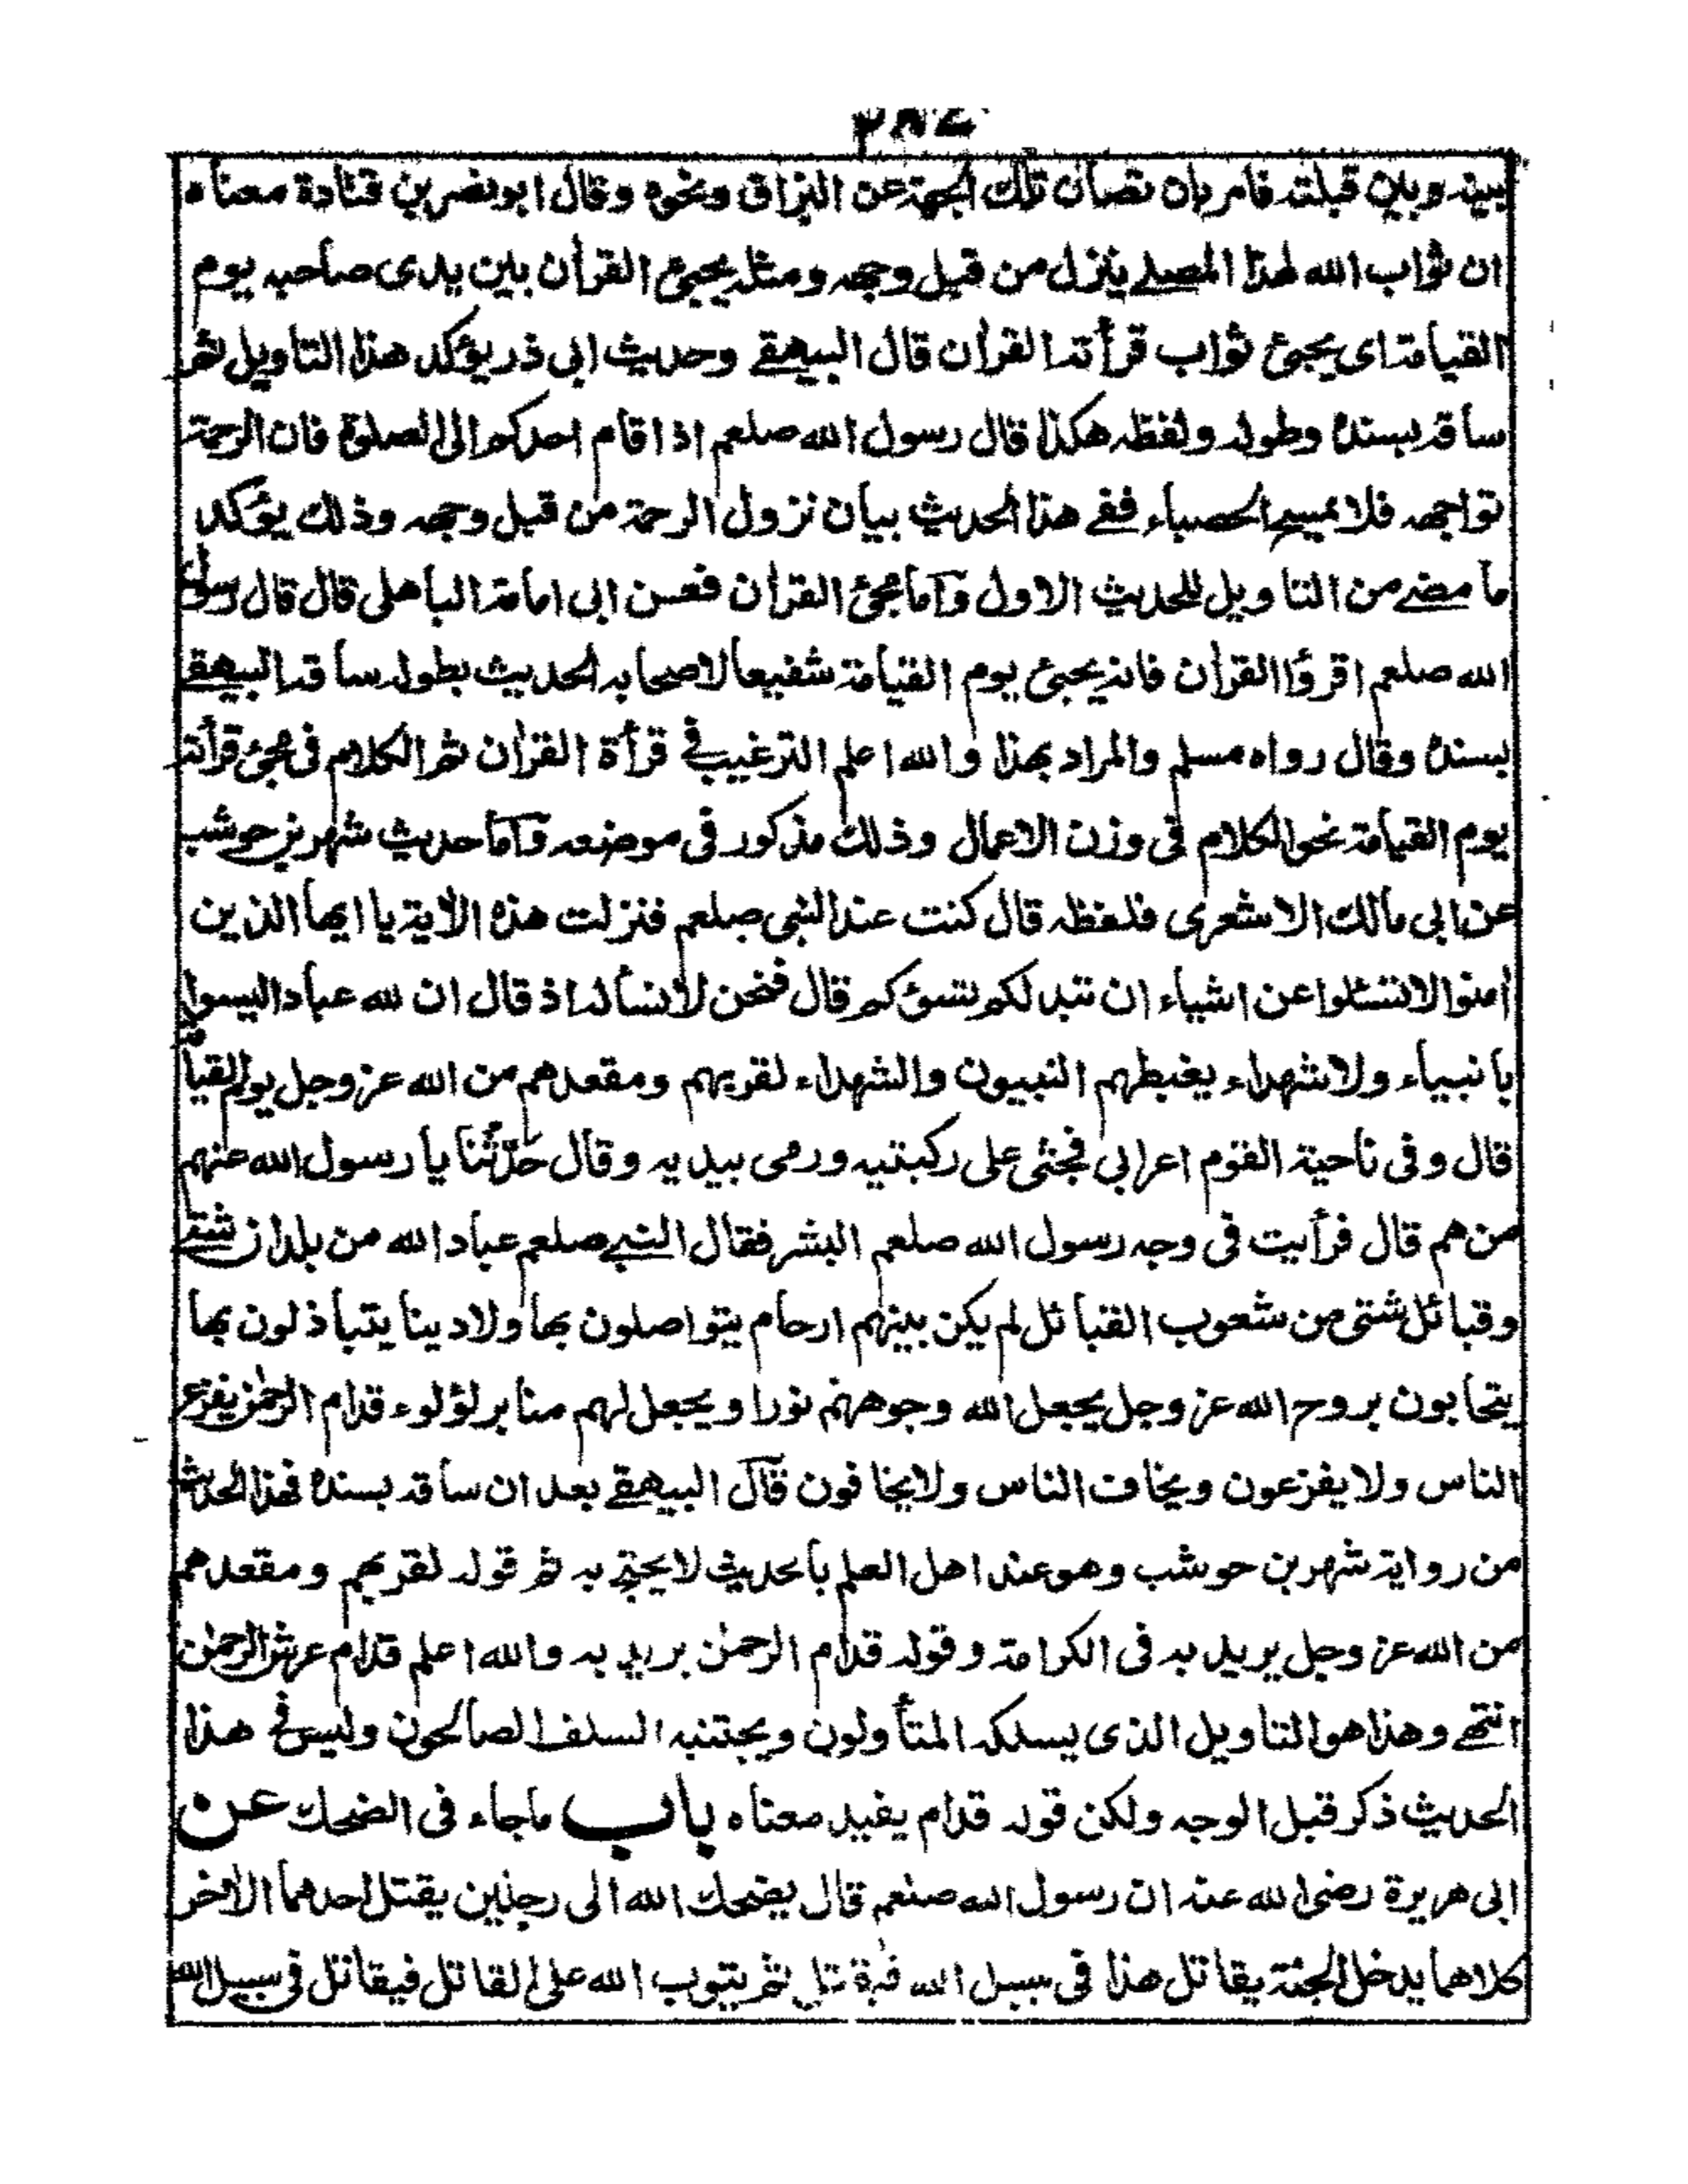 بينه وبين قبلته فامر بان تصان تلك الجهة عن البزاق ونحوه وقال ابو نصر بن قتادة معناه
ان ثواب الله لهذا المصلے ينزل من قبل وجهه ومثله يجیٔ القرأن بين يدى صاحبه يوم
القيامة اى يجیٔ ثواب قرأته القرأن قال البيهقے وحديث ابى ذر يؤكد هذا التاويل ثم
ساقه بسنده وطوله ولفظه هكذا قال رسول الله صلعم اذا قام احدكم الى الصلوة فان الرحمة
تواجهه فلا يمسح الحصباء ففے هذا الحديث بيان نزول الرحمة من قبل وجهه وذلك يؤكد
ما مضے من التاويل للحديث الاول وآما مجیٔ القرأن فعن ابى امامة الباهلى قال قال رسول
الله صلعم اقرؤا القرأن فانه يجیٔ يوم القيامة شفيعا لاصحابه الحديث بطوله ساقه البيهقے
بسنده وقال رواه مسلم والمراد بهذا والله اعلم الترغيب فے قرأة القرأن ثم الكلام فى مجیٔ قرأته
يوم القيامة نحو الكلام فى وزن الاعمال وذلك مذكور فى موضعه وآما حديث شهر بن حوشب
عن ابى مالك الاشعرى فلفظه قال كنت عند النبى صلعم فنزلت هذه الأية يا ايها الذين
أمنوا لا تسئلوا عن اشياء ان تبد لكم تسؤكم قال فنحن لا نسأله اذ قال ان لله عبادا ليسوا
بانبياء ولا شهداء يغبطهم النبيون والشهداء لقربهم ومقعدهم من الله عز وجل يوم القيامة
قال وفى ناحية القوم اعرابى فجثى على ركبتيه ورمى بيديه وقال حَدِّثْنَا يا رسول الله عنهم
من هم قال فرأيت فى وجه رسول الله صلعم البشر فقال النبے صلعم عباد الله من بلدان شتے
وقبائل شتى من شعوب القبائل لم يكن بينهم ارحام يتواصلون بها ولا دينا يتباذلون بها
يتحابون بروح الله عز وجل يجعل الله وجوههم نورا ويجعل لهم منابر لؤلوء قدام الرحمٰن يفزع
الناس ولا يفزعون ويخاف الناس ولا يخافون قآل البيهقے بعد ان ساقه بسنده فهذا الحديث
من رواية شهر بن حوشب وهو عند اهل العلم بالحديث لا يحتج به ثم قوله لقربهم ومقعدهم
من الله عز وجل يريد به فى الكرامة وقوله قدام الرحمٰن يريد به والله اعلم قدام عرش الرحمٰن
انتهے وهذا هو التاويل الذى يسلكه المتأولون ويجتنبه السلف الصالحون وليس فے هذا
الحديث ذكر قبل الوجه ولكن قوله قدام يفيد معناه باب ماجاء فى الضحك عن
ابى هريرة رضى الله عنه ان رسول الله صلعم قال يضحك الله الى رجلين يقتل احدهما الأخر
كلاهما يدخل الجنة يقاتل هذا فى سبيل الله فيقتل ثم يتوب الله على القاتل فيقاتل فى سبيل الله